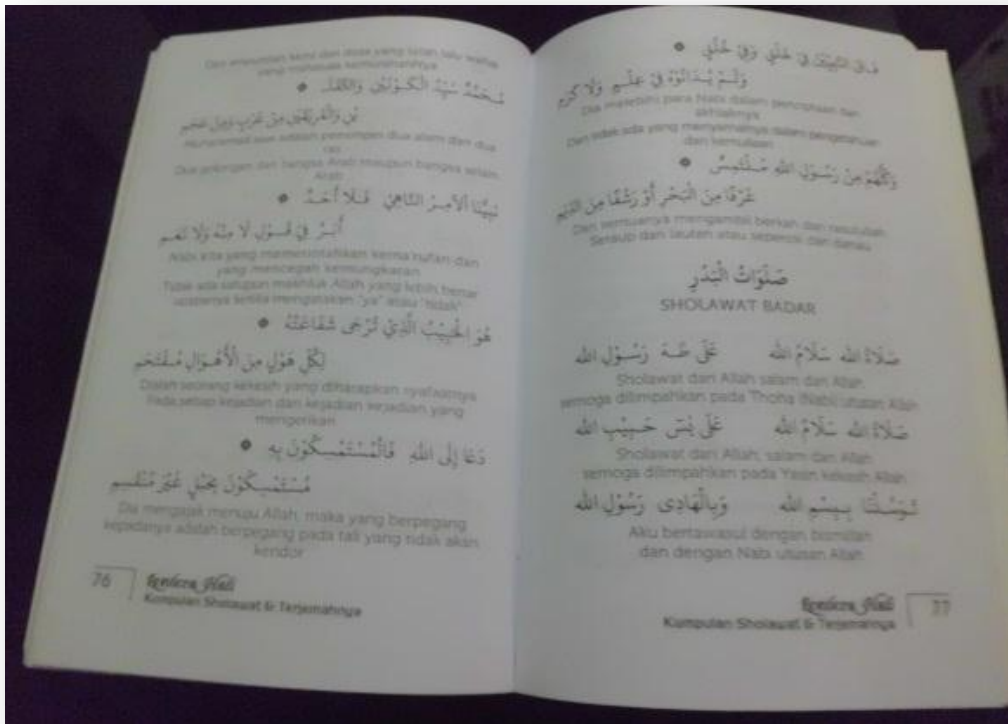 Dan ampunilah kami dari dosa yang telah lalu wahai
yang maha luas kemurahannya
مُحَمَّدٌ سَيِّدُ الْكَوْنَيْنِ وَالثَّقَلَـ
ـيْنِ وَالْفَرِيْقَيْنِ مِنْ عُرْبٍ وَمِنْ عَجَمِ
Muhammad saw adalah pemimpin dua alam dan dua
ras
Dua golongan dari bangsa Arab maupun bangsa selain
Arab
نَبِيُّنَا الْآمِرُ النَّاهِيْ فَلَا أَحَدٌ
أَبَرَّ فِيْ قَوْلِ لَا مِنْهُ وَلَا نَعَمِ
Nabi kita yang memerintahkan kema'rufan dan
yang mencegah kemungkaran
Tidak ada satupun makhluk Allah yang lebih benar
ucapanya ketika mengatakan "ya" atau "tidak"
هُوَ الْحَبِيْبُ الَّذِيْ تُرْجَى شَفَاعَتُهُ
لِكُلِّ هَوْلٍ مِنَ الْأَهْوَالِ مُقْتَحَمِ
Dialah seorang kekasih yang diharapkan syafaatnya
Pada setiap kejadian dari kejadian kejadian yang
mengerikan
دَعَا إِلَى اللهِ فَالْمُسْتَمْسِكُوْنَ بِهِ
مُسْتَمْسِكُوْنَ بِحَبْلٍ غَيْرِ مُنْفَسِمِ
Dia mengajak menuju Allah, maka yang berpegang
kepadanya adalah berpegang pada tali yang tidak akan
kendor
76
Lentera Hati
Kumpulan Sholawat & Terjemahnya
فَاقَ النَّبِيِّيْنَ فِيْ خَلْقٍ وَفِيْ خُلُقٍ
وَلَمْ يُدَانُوْهُ فِيْ عِلْمٍ وَلَا كَرَمِ
Dia melebihi para Nabi dalam penciptaan dan
akhlaknya
Dan tidak ada yang menyamainya dalam pengetahuan
dan kemuliaan
وَكُلُّهُمْ مِنْ رَسُوْلِ اللهِ مُلْتَمِسٌ
غَرْفًا مِنَ الْبَحْرِ أَوْ رَشْفًا مِنَ الدِّيَمِ
Dan semuanya mengambil berkah dari rasulullah
dari lautan atau dari
صَلَوَاتُ الْبَدْرِ
SHOLAWAT BADAR
صَلَاةُ الله سَلَامُ الله عَلَى طٰهَ رَسُوْلِ الله
Sholawat dari Allah salam dari Allah
semoga dilimpahkan pada Thoha (Nabi) utusan Allah
صَلَاةُ الله سَلَامُ الله عَلَى يٰسٓ حَبِيْبِ الله
Sholawat dari Allah, salam dari Allah
semoga dilimpahkan pada Yasin kekasih Allah
تَوَسَّلْنَا بِبِسْمِ الله وَبِالْهَادِى رَسُوْلِ الله
Aku bertawasul dengan bismillah
dan dengan Nabi utusan Allah
Lentera Hati
77
Kumpulan Sholawat & Terjemahnya